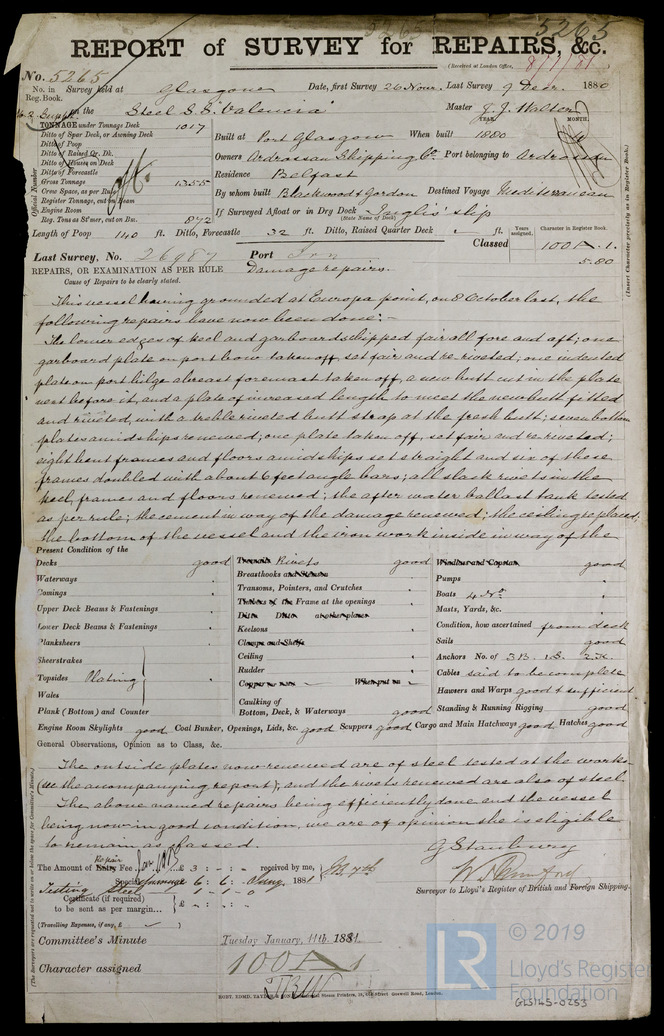 5265
REPORT of SURVEY for REPAIRS, &c.
(Received at London Office, 8/1/81
No. 5265
No. in Reg. Book.
Survey held at Glasgow Date, first Survey 26 Novr. Last Survey 9 Decr. 1880
on the Steel S.S. 'Valencia' Master J. J. Walter
TONNAGE under Tonnage Deck 1017
Ditto of Spar Deck, or Awning Deck
Ditto of Poop
Ditto of Raised Qr. Dk.
Ditto of Houses on Deck
Ditto of Forecastle
Gross Tonnage 1355
Crew Space, as per Rule
Register Tonnage, out on Beam
Engine Room
Reg. Tons as St'mer, cut on Bm. 872
Official Number
YEAR. MONTH.
Built at Port Glasgow When built 1880
Owners Ardrossan Shipping Co. Port belonging to Ardrossan
Residence Belfast
By whom built Blackwood & Gordon Destined Voyage Mediterranean
If Surveyed Afloat or in Dry Dock Inglis' slip
(State Name of Dock)
Length of Poop 140 ft. Ditto, Forecastle 32 ft. Ditto, Raised Quarter Deck - ft.
Years assigned. Character in Register Book.
Classed 100A.1.
5.80
(Insert Character precisely as in Register Book.)
Last Survey, No. 26987 Port
REPAIRS, OR EXAMINATION AS PER RULE Damage repairs.
Cause of Repairs to be clearly stated.
This vessel having grounded at Europa point, on 8 October last, the
following repairs have now been done:-
The lower edges of keel and garboards chipped fair all fore and aft; one
garboard plate on port bow taken off, set fair and re-riveted; one indented
plate on port bilge abreast foremast taken off, a new butt cut in the plate
next before it, and a plate of increased length to meet the new butt fitted
and riveted, with a treble riveted butt strap at the fresh butt; seven bottom
plates amidships renewed; one plate taken off, set fair and re-riveted;
eight bent frames and floors amidships set straight and six of those
frames doubled with about 6 feet angle bars; all slack rivets in the
keel, frames and floors renewed; the after water ballast tank tested
as per rule; the cement in way of the damage renewed; the ceiling replaced;
the bottom of the vessel and the iron work inside in way of the
Present Condition of the
Decks good
Waterways "
Comings "
Upper Deck Beams & Fastenings "
Lower Deck Beams & Fastenings "
Planksheers "
Sheerstrakes
Topsides Plating "
Wales
Plank (Bottom) and Counter
Treenails Rivets good
Breasthooks and Stemson "
Transoms, Pointers, and Crutches "
Timbers of the Frame at the openings "
Ditto Ditto at other places "
Keelsons "
Clamps and Shelfs
Ceiling "
Rudder "
Copper or mxm When put on
Caulking of Bottom, Deck, & Waterways good
Windlass and Capstan good
Pumps "
Boats 4 No. "
Masts, Yards, &c. "
Condition, how ascertained from deck
Sails good
Anchors No. of 3B. 1S. 2K.
Cables said to be complete
Hawsers and Warps good & sufficient
Standing & Running Rigging good
Engine Room Skylights good Coal Bunker, Openings, Lids, &c. good Scuppers good Cargo and Main Hatchways good Hatches good
General Observations, Opinion as to Class, &c.
The outside plates now renewed are of steel tested at the works
(see the accompanying report), and the rivets renewed are also of steel.
The above named repairs being efficiently done and the vessel
being now in good condition, we are of opinion she is eligible
to remain as classed.
G Stanbury
The Amount of Entry Repair Fee £ 3 : - : - received by me,
Special Damage 6 : 6 : 1881
Testing Steel 1 : 1 : 0
Certificate (if required)
to be sent as per margin... £ - : - : -
(Travelling Expenses, if any, £
Surveyor to Lloyd's Register of British and Foreign Shipping.
Committee's Minute Tuesday January, 11th 1881.
Character assigned 100A1
(The Surveyors are requested not to write on or below the space for Committee's Minute.)
© 2019
LR
Lloyd's Register
Foundation
GLS145-0253